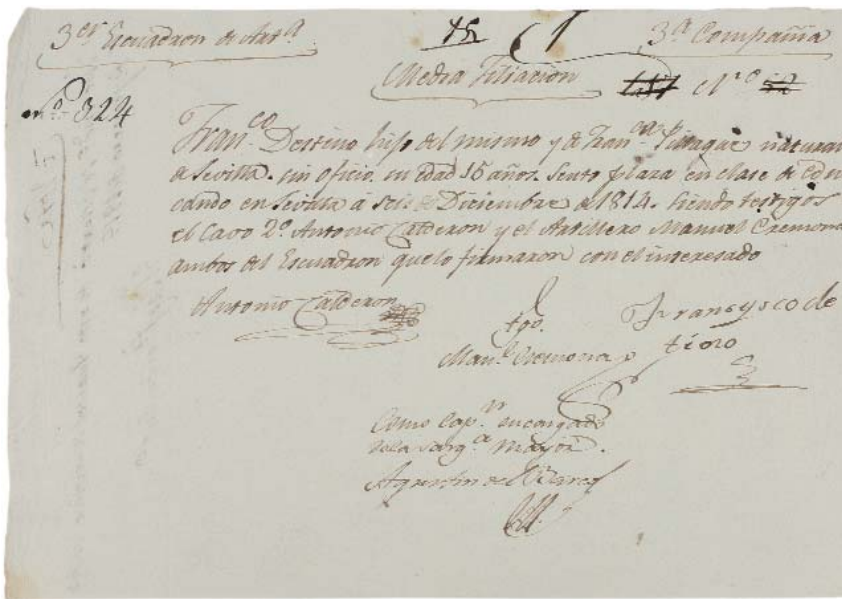 3er Escuadron de Arta
15
3a Compañia
Media Filiacion
No
No 324
Franco Destino hijo del mismo y de Franca natural
de Sevilla, sin oficio, su edad 15 años. Sento plaza en clase de edu
cando en Sevilla á seis de Diciembre de 1814. siendo testigos
el Cavo 2o Antonio Calderon y el Artillero Manuel Cremona
ambos del Escuadron que lo firmaron con el interesado
Antonio Calderon
tgo.
Fransysco de
Manl Cremona
tino
Como Capn encargado
de la Sarga mayor.
Agustin de